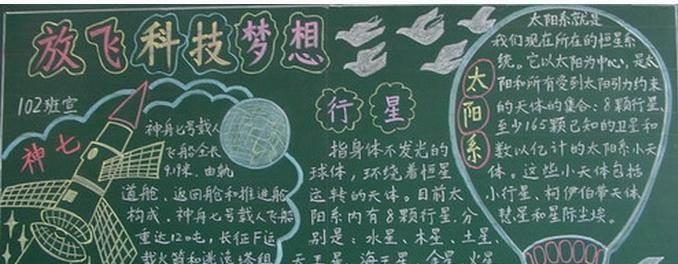 放飞科技梦想
102班宣
神七
神舟七号载人
飞船全长
9.19米,由轨
道舱、返回舱和推进舱
构成,神舟七号载人飞船
重达12吨,长征F运
载火箭和逃逸塔组
行星
指身体不发光的
球体,环绕着恒星
运转的天体。目前太
阳系内有8颗行星,分
别是:水星、木星、土星、
天王星、海王星、金星、火星
太阳系
太阳系就是
我们现在所在的恒星系
统。它以太阳为中心,是太
阳和所有受到太阳引力约束
的天体的集合:8颗行星、
至少165颗已知的卫星和
数以亿计的太阳系小天
体。这些小天体包括
小行星、柯伊伯带天体、
彗星和星际尘埃。